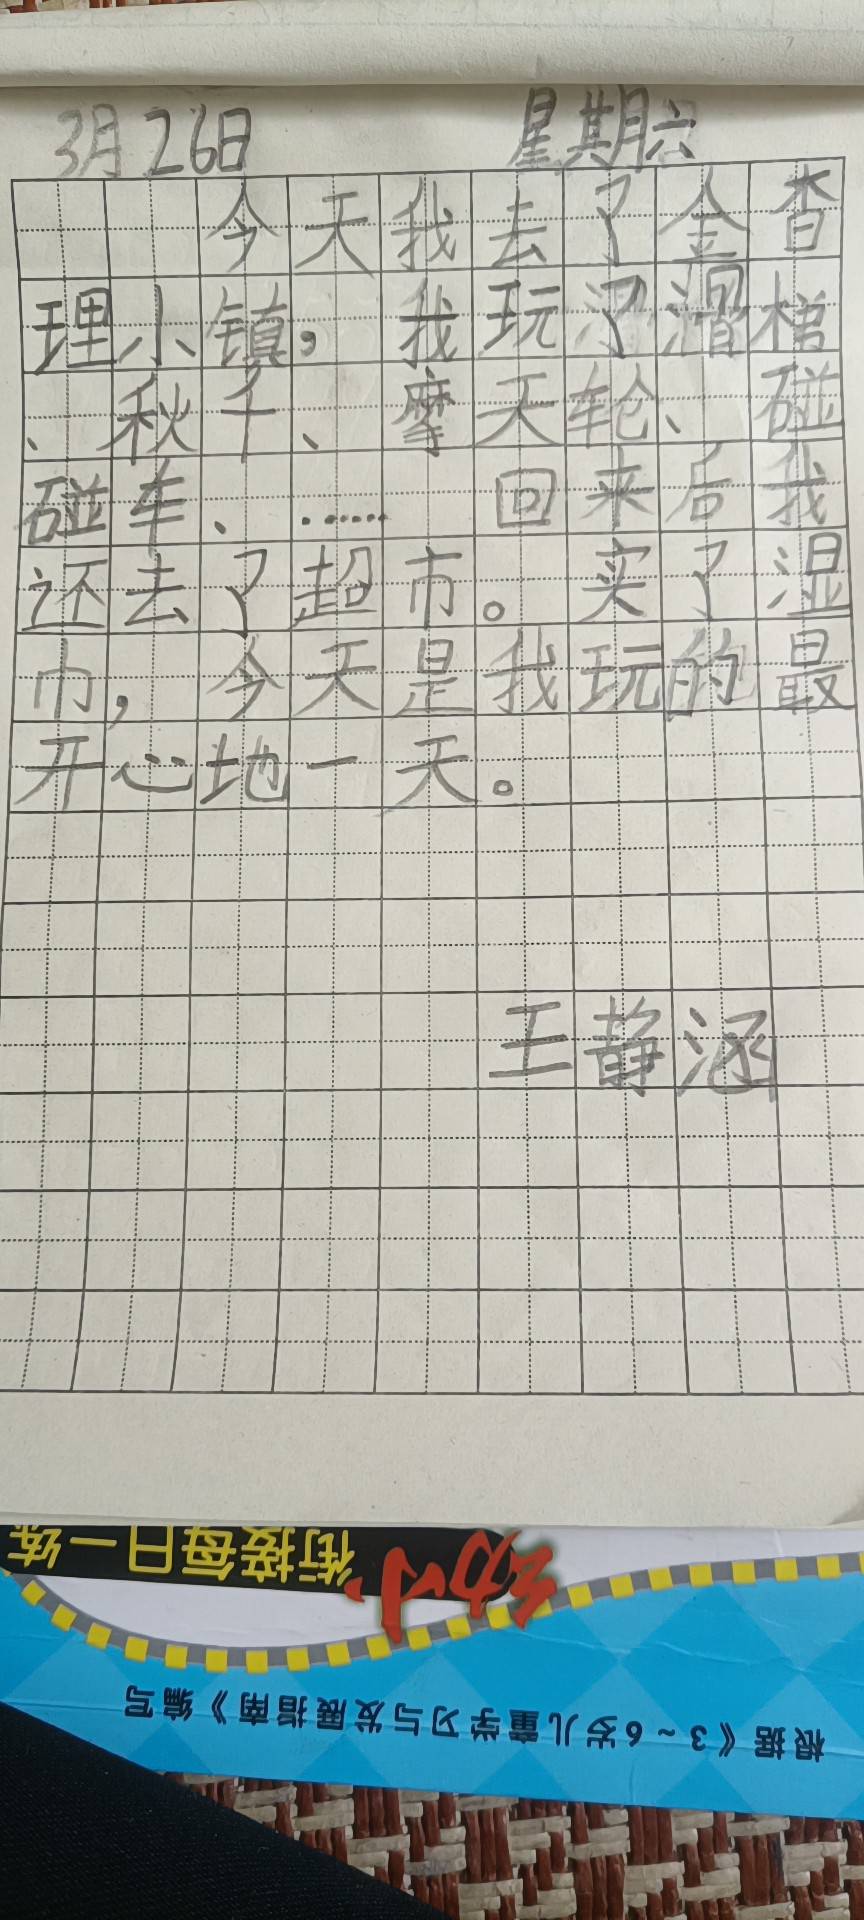 3月26日 星期六
今天我去了金杳
理小镇，我玩了滑梯
、秋千、摩天轮、碰
碰车、…… 回来后我
还去了超市。买了湿
巾，今天是我玩的最
开心地一天。
王静涵
幼小衔接每日一练
根据《3~6岁儿童学习与发展指南》编写